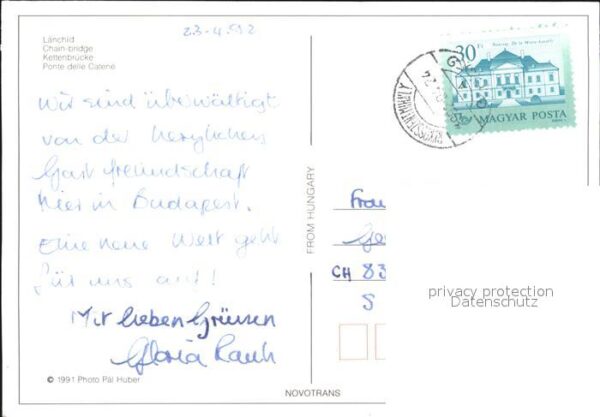 23-4.92
Lánchíd
Chain-bridge
Kettenbrücke
Ponte delle Catene
Wir sind überwältigt
von der herzlichen
Gastfreundschaft
hier in Budapest.
Eine neue Welt geht
für uns auf!
Mit lieben Grüssen
Gloria
© 1991 Photo Pál Huber
NOVOTRANS
FROM HUNGARY
30 Ft
MAGYAR POSTA
Frau
CH 83
S
privacy protection
Datenschutz